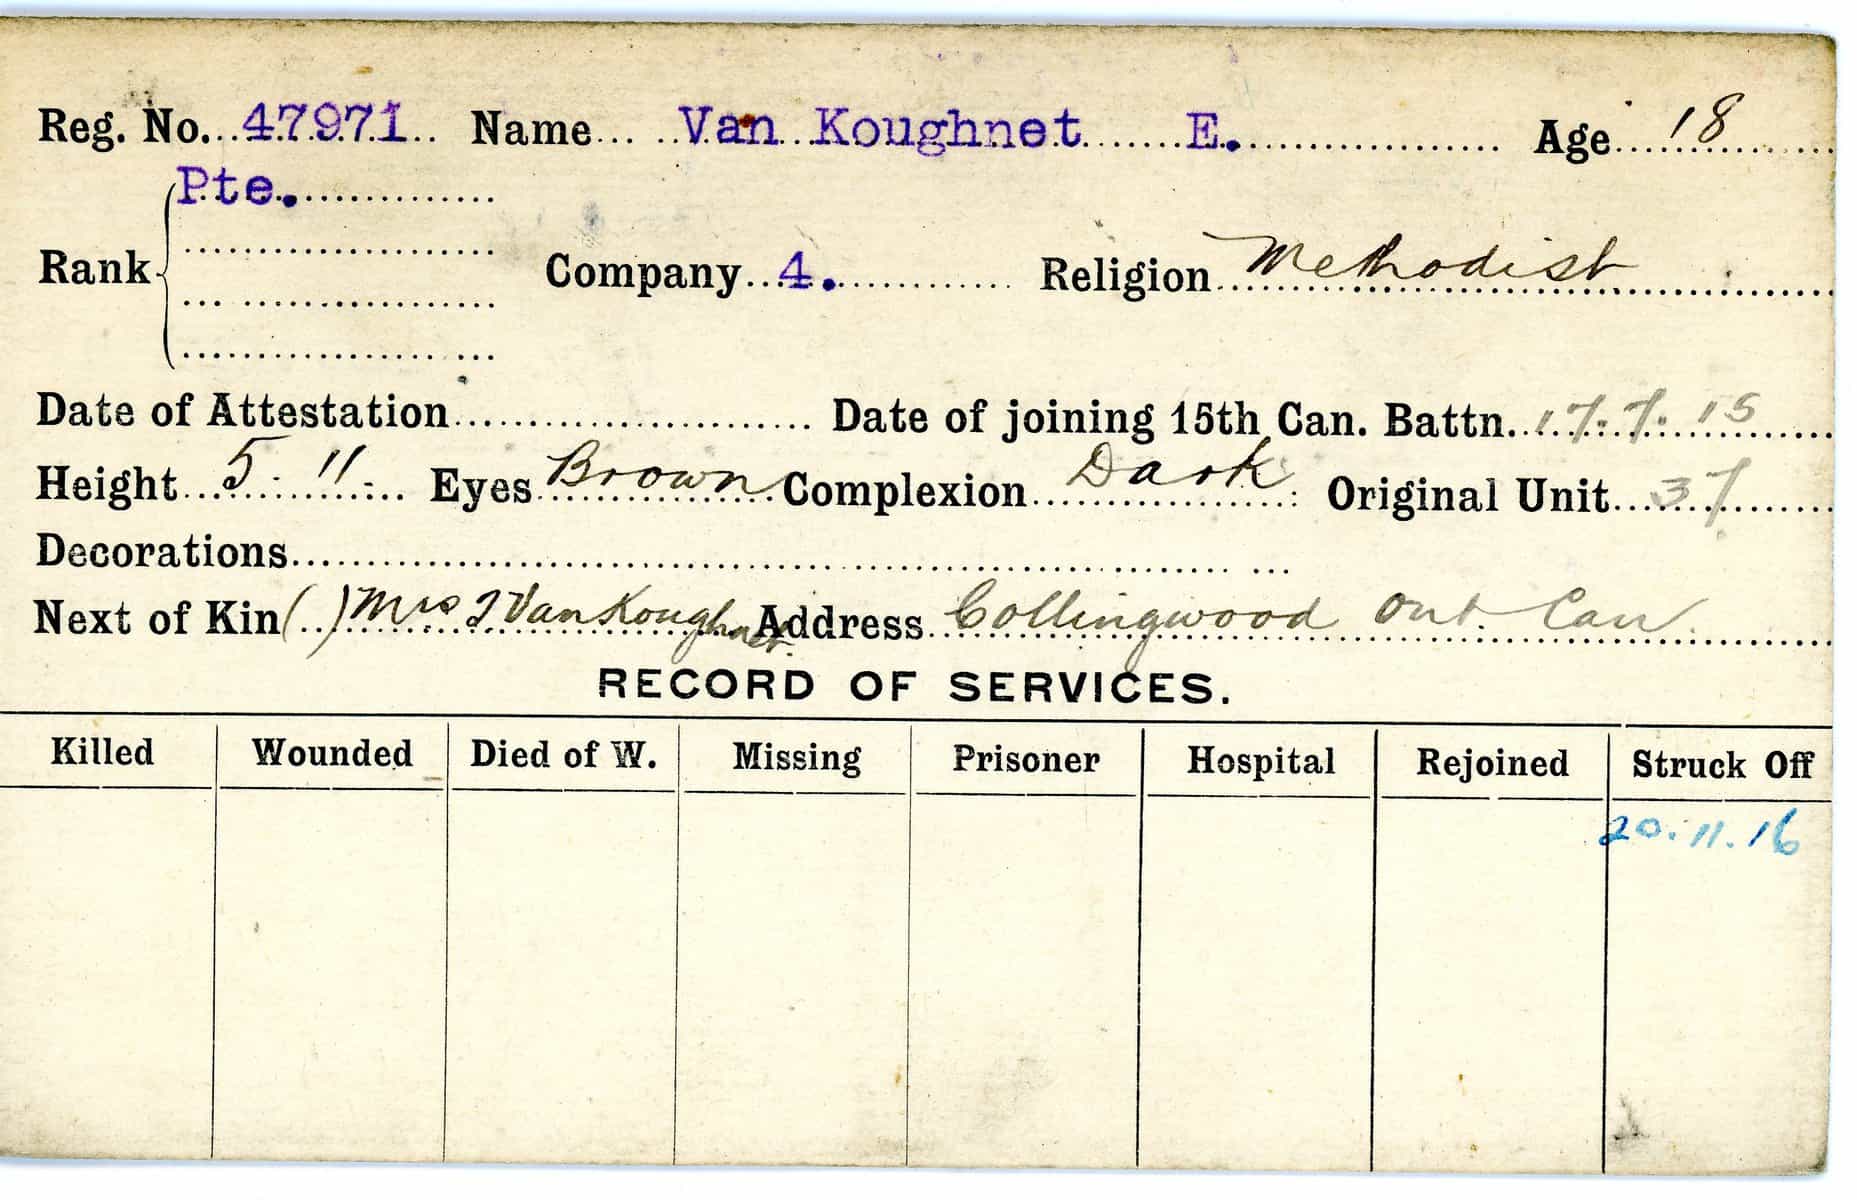 Reg. No. 47971 Name Van Koughnet E. Age 18
Pte.
Rank Company 4. Religion Methodist
Date of Attestation Date of joining 15th Can. Battn. 17.7.15
Height 5.11. Eyes Brown Complexion Dark Original Unit 37
Decorations
Next of Kin ( ) Mrs J Van Koughnet Address Collingwood Ont. Can
RECORD OF SERVICES.
Killed Wounded Died of W. Missing Prisoner Hospital Rejoined Struck Off
20.11.16